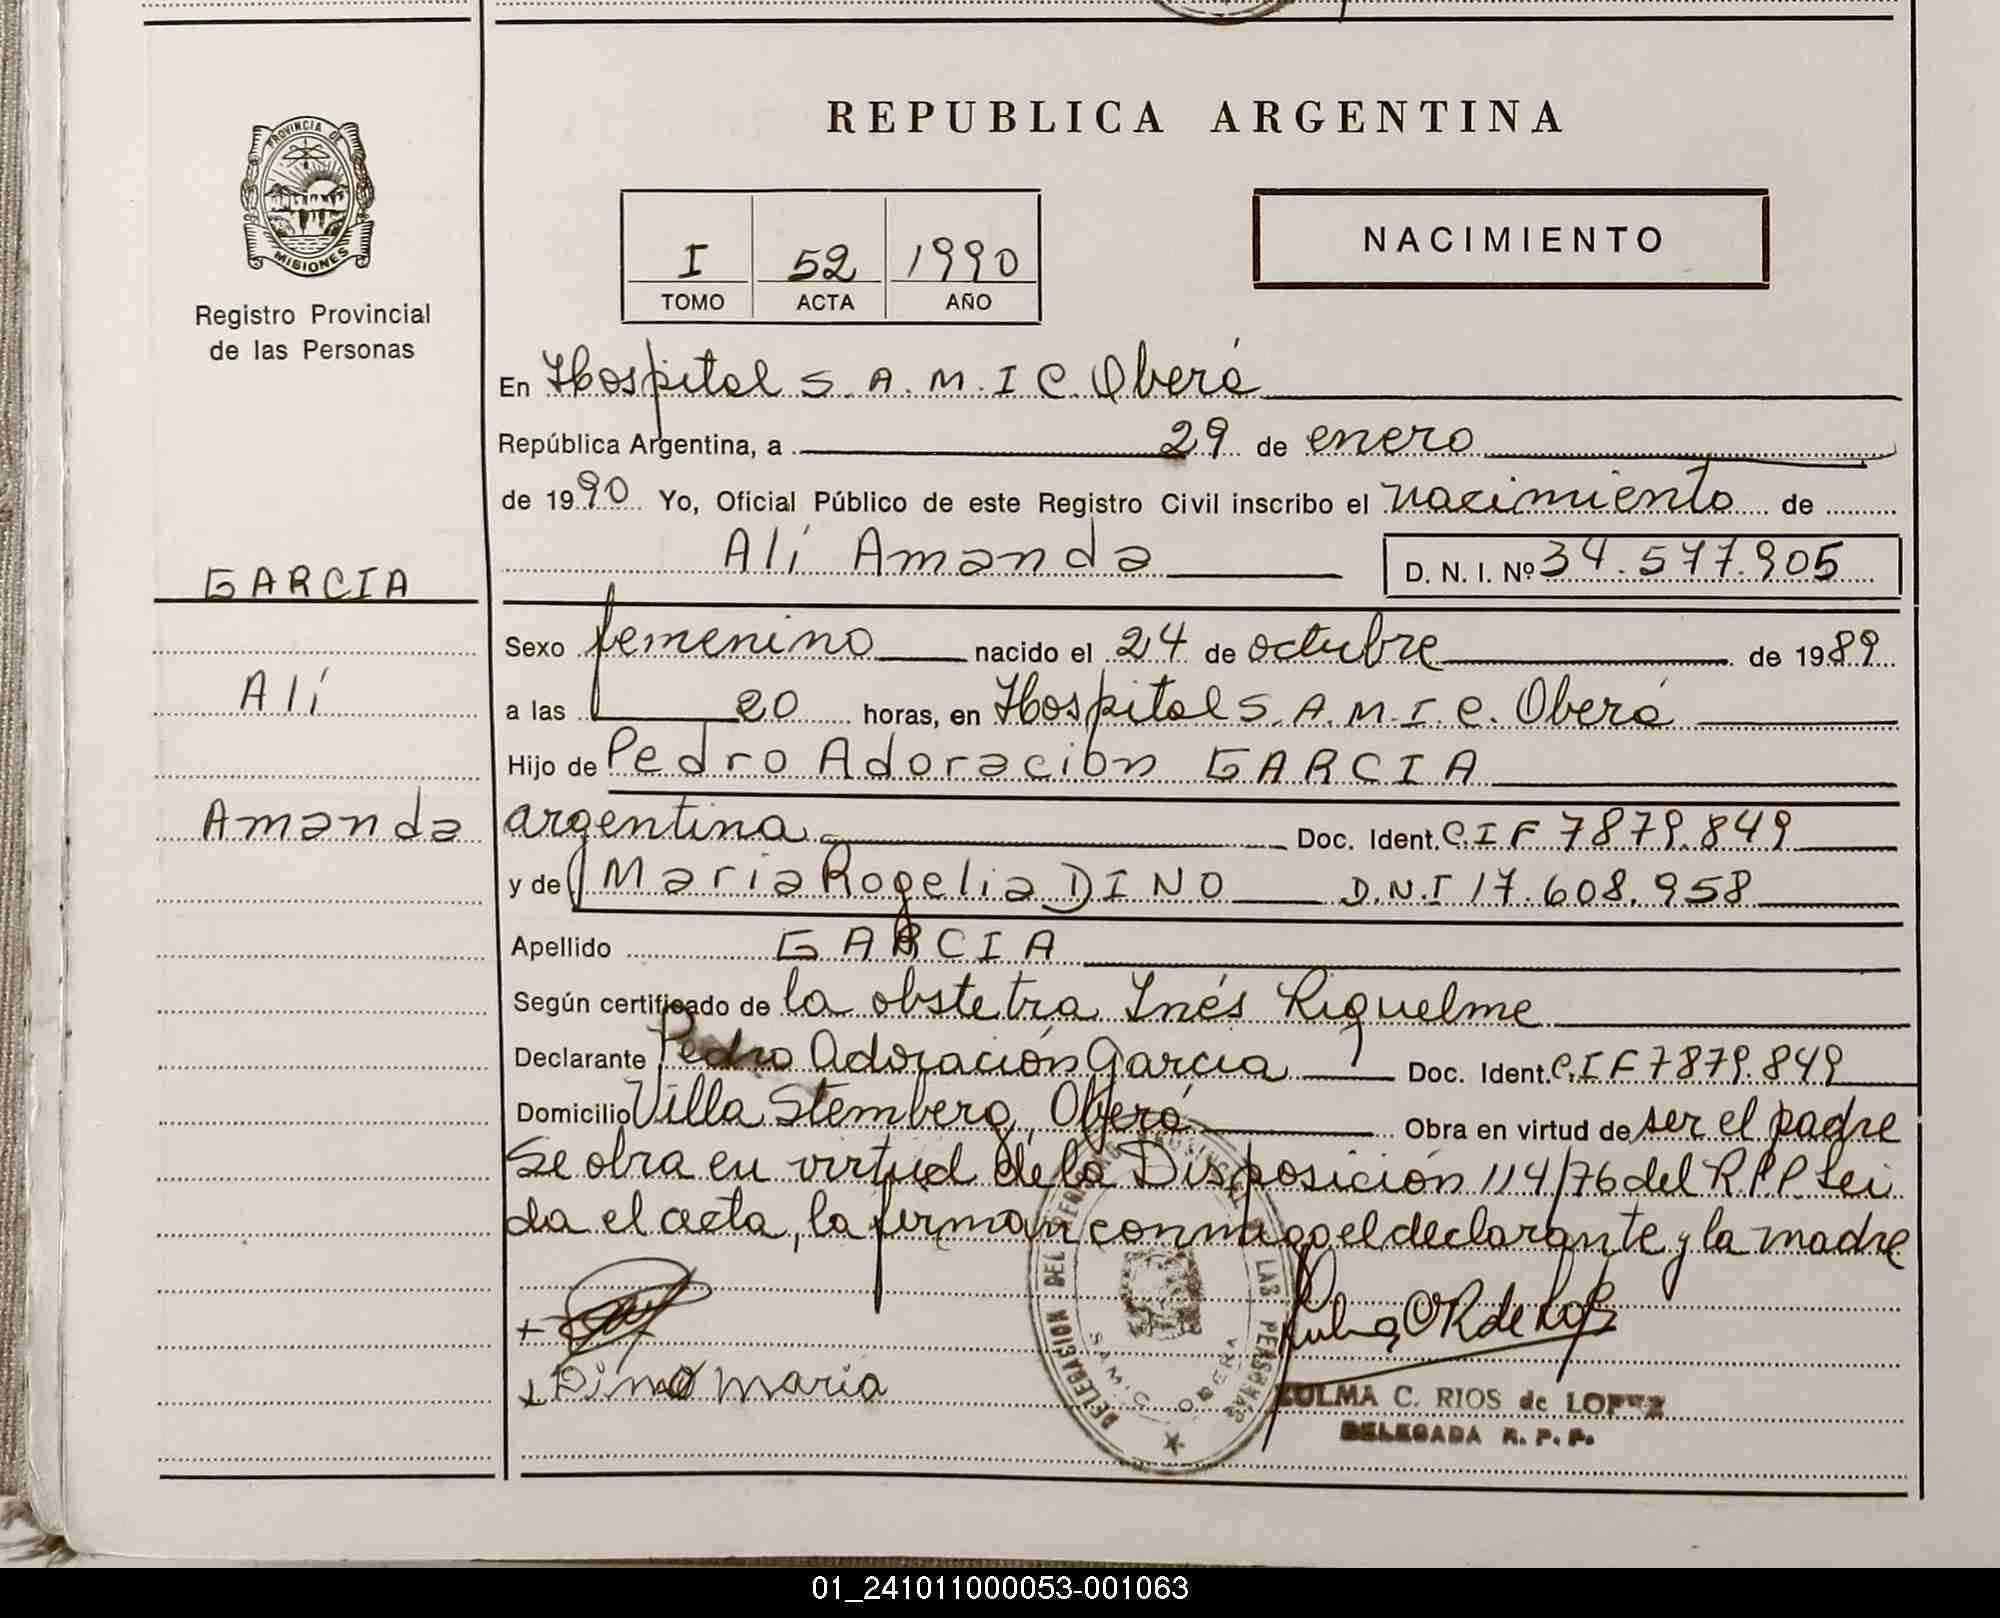 PROVINCIA DE
MISIONES
Registro Provincial
de las Personas
REPUBLICA ARGENTINA
I 52 1990
TOMO ACTA AÑO
NACIMIENTO
En Hospital S.A.M.I C. Oberá
República Argentina, a 29 de enero
de 1990 Yo, Oficial Público de este Registro Civil inscribo el nacimiento de
Alí Amanda D. N. I. Nº 34.577.905
GARCIA
Alí
Amanda
Sexo femenino nacido el 24 de octubre de 1989
a las 20 horas, en Hospital S.A.M.I.C. Oberá
Hijo de Pedro Adoración GARCIA
argentina Doc. Ident. C.I F 7879.849
y de Maria Rogelia DINO D.N.I 17.608.958
Apellido GARCIA
Según certificado de la obstetra Inés Riquelme
Declarante Pedro Adoración Garcia Doc. Ident. C.I F 7879.849
Domicilio Villa Stemberg, Oberá Obra en virtud de ser el padre
Se obra en virtud de la Disposición 114/76 del R.P.P. Lei
da el acta, la firman conmigo el declarante y la madre
Dino Maria
DELEGACION DEL REGISTRO DE LAS PERSONAS
S.A.M.I.C. OBERA
ZULMA C. RIOS de LOPEZ
DELEGADA R. P. P.
01_241011000053-001063